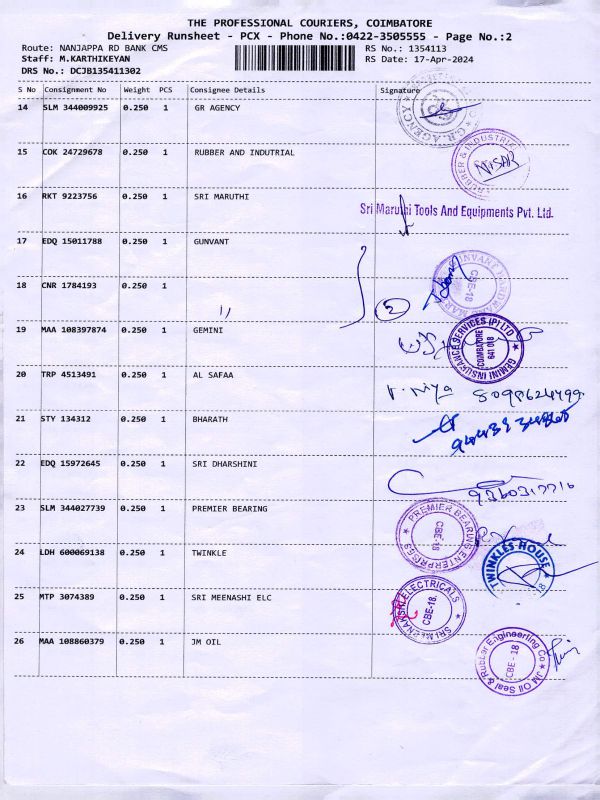 THE PROFESSIONAL COURIERS, COIMBATORE
Delivery Runsheet - PCX - Phone No.:0422-3505555 - Page No.:2
Route: NANJAPPA RD BANK CMS RS No.: 1354113
Staff: M.KARTHIKEYAN RS Date: 17-Apr-2024
DRS No.: DCJB135411302
S No Consignment No Weight PCS Consignee Details Signature
14 SLM 344009925 0.250 1 GR AGENCY
G.R.AGENCY
15 COK 24729678 0.250 1 RUBBER AND INDUTRIAL
RUBBER & INDUSTRIAL
NISAR
16 RKT 9223756 0.250 1 SRI MARUTHI
Sri Maruthi Tools And Equipments Pvt. Ltd.
17 EDQ 15011788 0.250 1 GUNVANT
GUNVANT HARDWARE MART
CBE-18
18 CNR 1784193 0.250 1 2
19 MAA 108397874 0.250 1 GEMINI
GEMINI INSURANCE SERVICES (P) LTD
COIMBATORE
641 018
20 TRP 4513491 0.250 1 AL SAFAA
21 STY 134312 0.250 1 BHARATH
22 EDQ 15972645 0.250 1 SRI DHARSHINI
23 SLM 344027739 0.250 1 PREMIER BEARING
PREMIER BEARING ENTERPRISES
CBE-18
24 LDH 600069138 0.250 1 TWINKLE
TWINKLES HOUSE
25 MTP 3074389 0.250 1 SRI MEENASHI ELC
SRI MEENAKSHI ELECTRICALS
CBE-18.
26 MAA 108860379 0.250 1 JM OIL
JM Oil Seal & Rubber Engineering Co
CBE - 18